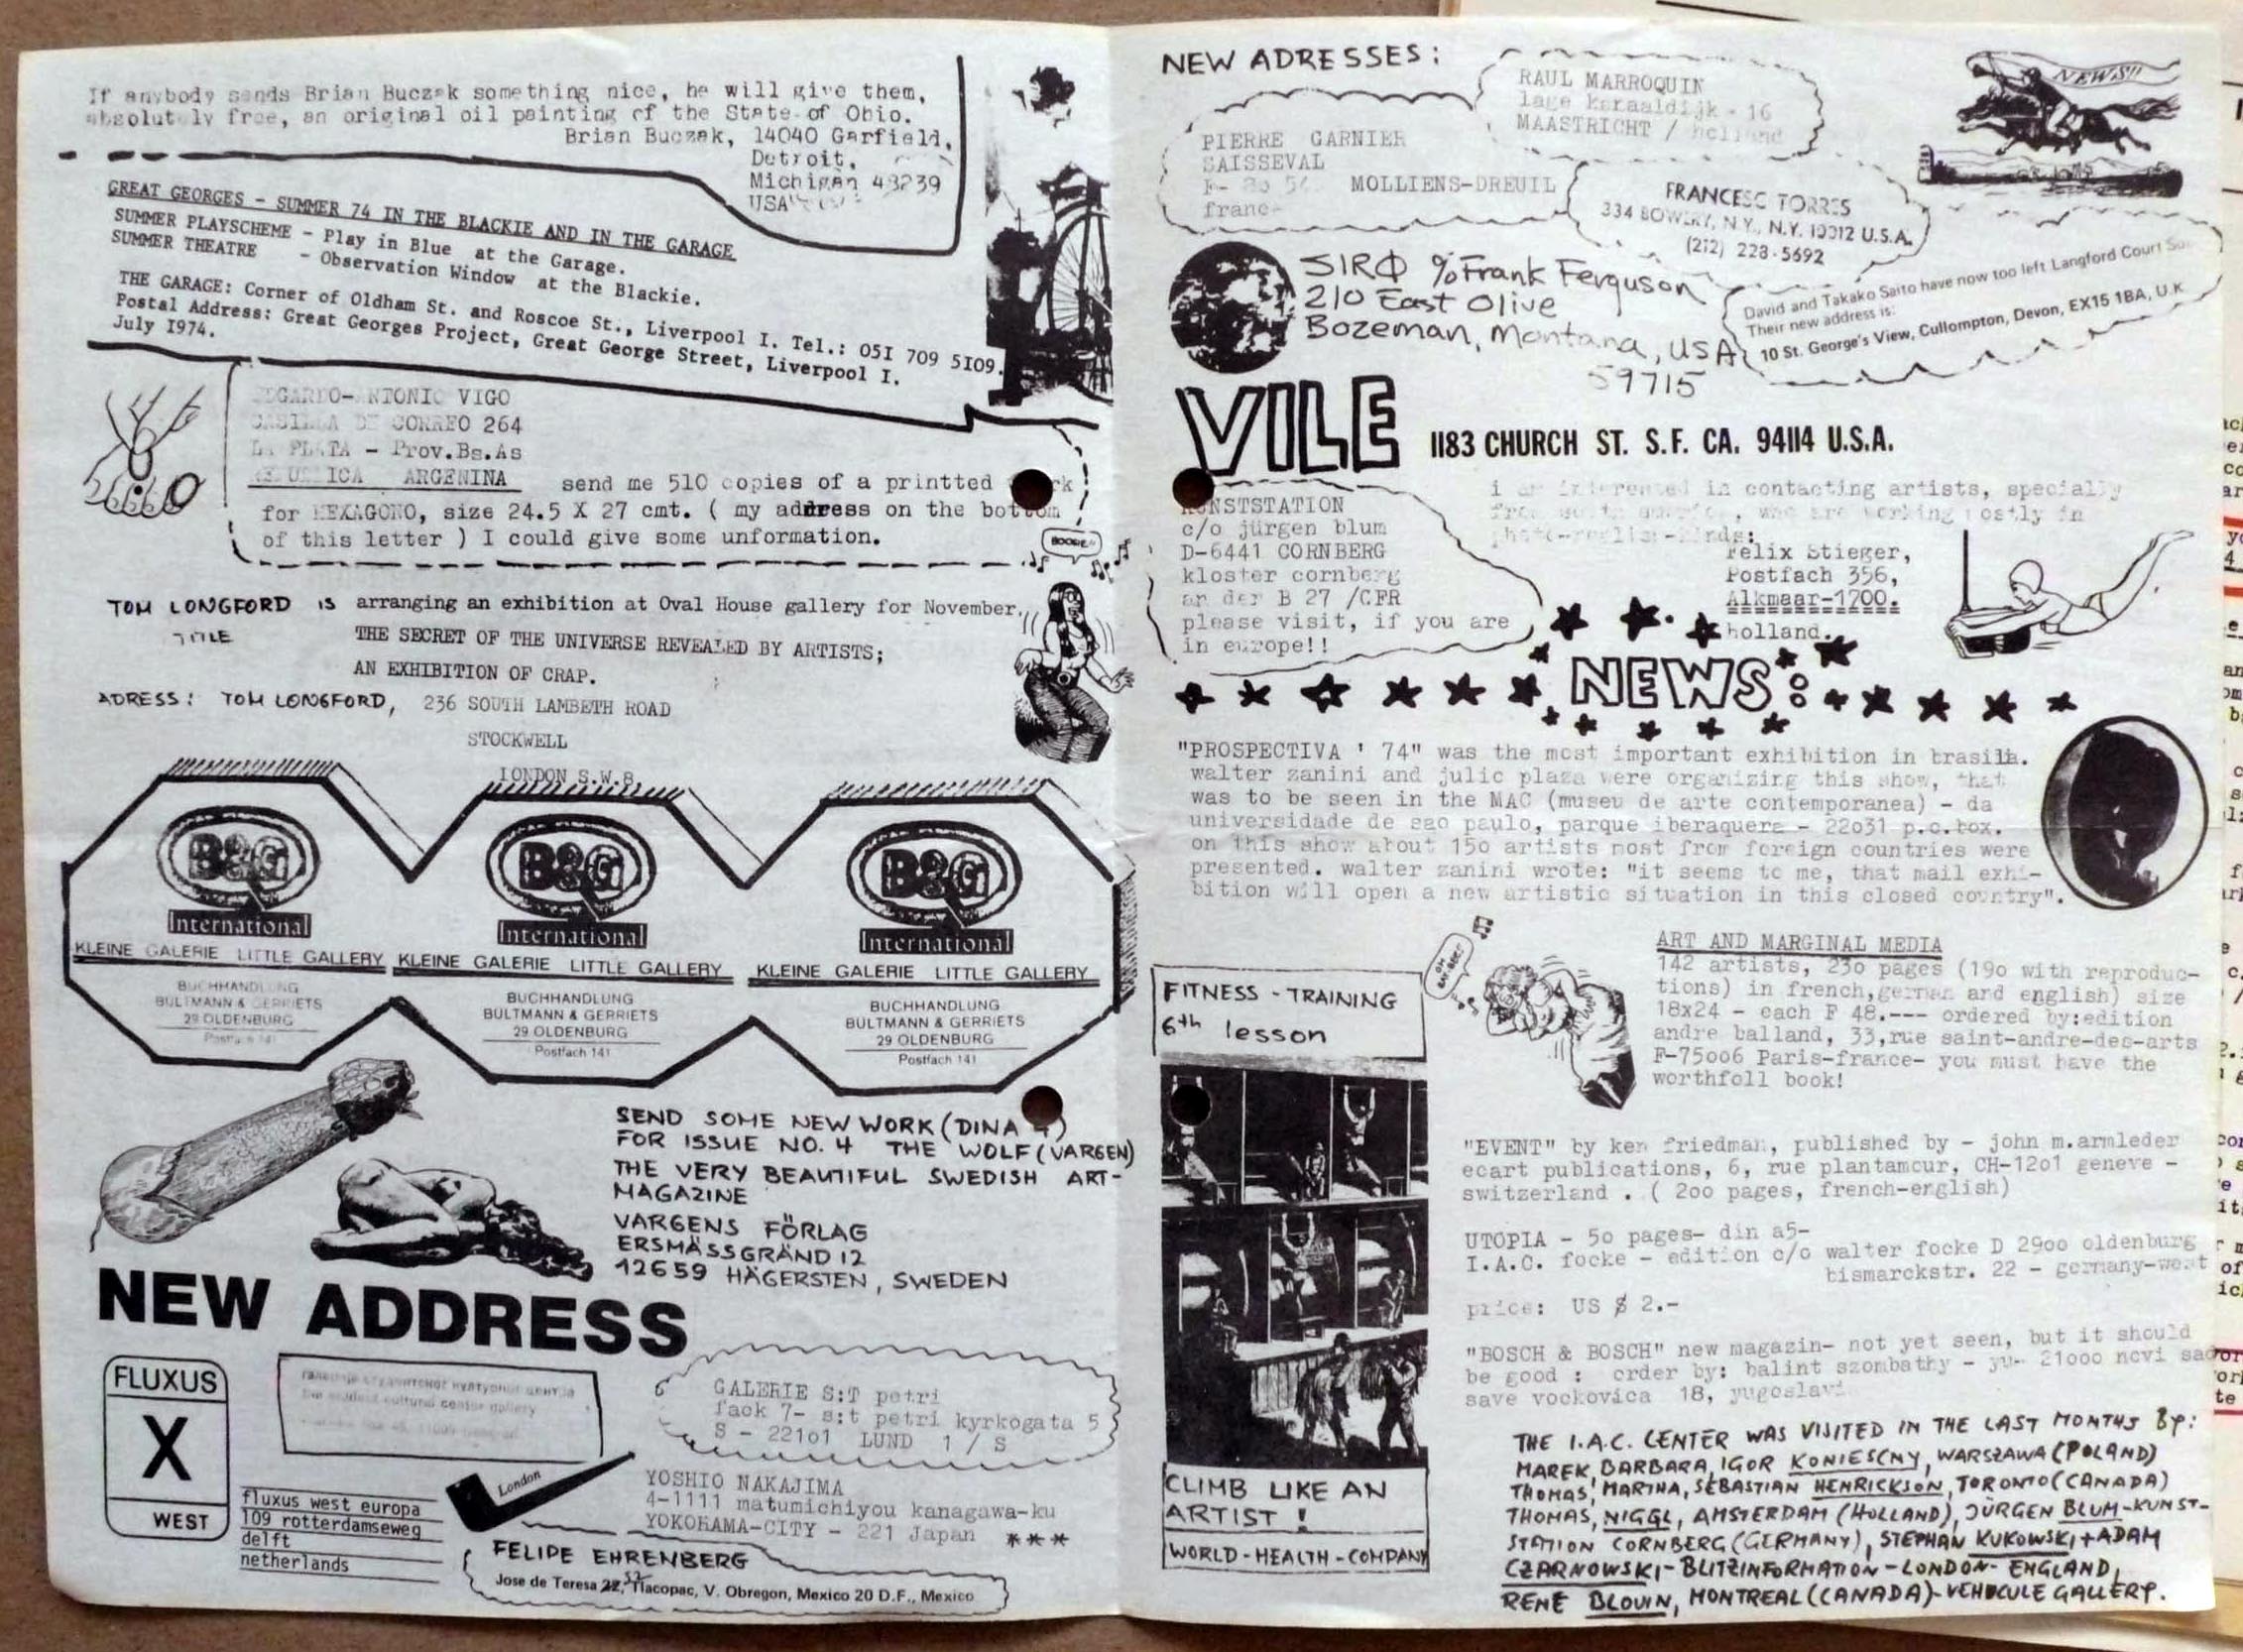 If anybody sends Brian Buczak something nice, he will give them,
absolutely free, an original oil painting of the State of Ohio.
Brian Buczak, 14040 Garfield,
Detroit,
Michigan 48239
USA
GREAT GEORGES - SUMMER 74 IN THE BLACKIE AND IN THE GARAGE
SUMMER PLAYSCHEME - Play in Blue at the Garage.
SUMMER THEATRE - Observation Window at the Blackie.
THE GARAGE: Corner of Oldham St. and Roscoe St., Liverpool I. Tel.: 051 709 5109.
Postal Address: Great Georges Project, Great George Street, Liverpool I.
July 1974.
EDGARDO-ANTONIO VIGO
CASILLA DE CORREO 264
LA PLATA - Prov.Bs.As
REPUBLICA ARGENINA send me 510 copies of a printted work
for HEXAGONO, size 24.5 X 27 cmt. ( my address on the bottom
of this letter ) I could give some unformation.
BOOGIE!
TOM LONGFORD IS arranging an exhibition at Oval House gallery for November.
TITLE THE SECRET OF THE UNIVERSE REVEALED BY ARTISTS;
AN EXHIBITION OF CRAP.
ADRESS: TOM LONGFORD, 236 SOUTH LAMBETH ROAD
STOCKWELL
LONDON S.W.8.
B&G
International
KLEINE GALERIE LITTLE GALLERY
BUCHHANDLUNG
BÜLTMANN & GERRIETS
29 OLDENBURG
Postfach 141
B&G
International
KLEINE GALERIE LITTLE GALLERY
BUCHHANDLUNG
BÜLTMANN & GERRIETS
29 OLDENBURG
Postfach 141
B&G
International
KLEINE GALERIE LITTLE GALLERY
BUCHHANDLUNG
BÜLTMANN & GERRIETS
29 OLDENBURG
Postfach 141
SEND SOME NEW WORK (DINA 4)
FOR ISSUE NO. 4 THE WOLF (VARGEN)
THE VERY BEAUTIFUL SWEDISH ART-
MAGAZINE
VARGENS FÖRLAG
ERSMÄSSGRÄND 12
12659 HÄGERSTEN, SWEDEN
NEW ADDRESS
FLUXUS
X
WEST
the student cultural center gallery
fluxus west europa
109 rotterdamseweg
delft
netherlands
London
GALERIE S:T petri
fack 7- s:t petri kyrkogata 5
S - 22101 LUND 1 / S
YOSHIO NAKAJIMA
4-1111 matumichiyou kanagawa-ku
YOKOHAMA-CITY - 221 Japan ***
FELIPE EHRENBERG
Jose de Teresa 22, 52 Tlacopac, V. Obregon, Mexico 20 D.F., Mexico
NEW ADRESSES:
RAUL MARROQUIN
lage kanaaldijk - 16
MAASTRICHT / holland
NEWS!!
PIERRE GARNIER
SAISSEVAL
F- 80 54 MOLLIENS-DREUIL
france
FRANCESC TORRES
334 BOWERY, N.Y., N.Y. 10012 U.S.A.
(212) 228-5692
SIRØ % Frank Ferguson
210 East Olive
Bozeman, Montana, USA
59715
David and Takako Saito have now too left Langford Court
Their new address is:
10 St. George's View, Cullompton, Devon, EX15 1BA, U.K
VILE 1183 CHURCH ST. S.F. CA. 94114 U.S.A.
KUNSTSTATION
c/o jürgen blum
D-6441 CORNBERG
kloster cornberg
an der B 27 /CFR
please visit, if you are
in europe!!
i am interested in contacting artists, specially
from south america, who are working mostly in
photo-realism-kinds:
Felix Stieger,
Postfach 356,
Alkmaar-1700.
holland.
NEWS:
"PROSPECTIVA ' 74" was the most important exhibition in brasilh.
walter zanini and julic plaza were organizing this show, that
was to be seen in the MAC (museu de arte contemporanea) - da
universidade de sao paulo, parque iberaquera - 22031 p.o.box.
on this show about 150 artists most from foreign countries were
presented. walter zanini wrote: "it seems to me, that mail exhi-
bition will open a new artistic situation in this closed country".
ART AND MARGINAL MEDIA
142 artists, 230 pages (190 with reproduc-
tions) in french, german and english) size
18x24 - each F 48.--- ordered by:edition
andre balland, 33,rue saint-andre-des-arts
F-75006 Paris-france- you must have the
worthfoll book!
FITNESS - TRAINING
6th lesson
"EVENT" by ken friedman, published by - john m.armleder
ecart publications, 6, rue plantamour, CH-1201 geneve -
switzerland . ( 200 pages, french-english)
UTOPIA - 50 pages- din a5-
I.A.C. focke - edition c/o walter focke D 2900 oldenburg
bismarckstr. 22 - germany-west
price: US $ 2.-
"BOSCH & BOSCH" new magazin- not yet seen, but it should
be good : order by: balint szombathy - yu- 21000 novi sad
save vockovica 18, yugoslavi
CLIMB LIKE AN
ARTIST !
WORLD-HEALTH-COMPANY
THE I.A.C. CENTER WAS VISITED IN THE LAST MONTHS BY:
MAREK, BARBARA, IGOR KONIESCNY, WARSZAWA (POLAND)
THOMAS, MARTHA, SEBASTIAN HENRICKSON, TORONTO (CANADA)
THOMAS, NIGGL, AMSTERDAM (HOLLAND), JÜRGEN BLUM-KUNST-
STATION CORNBERG (GERMANY), STEPHAN KUKOWSKI + ADAM
CZARNOWSKI-BLITZINFORMATION-LONDON-ENGLAND,
RENÉ BLOUIN, MONTREAL (CANADA)-VEHICULE GALLERY.